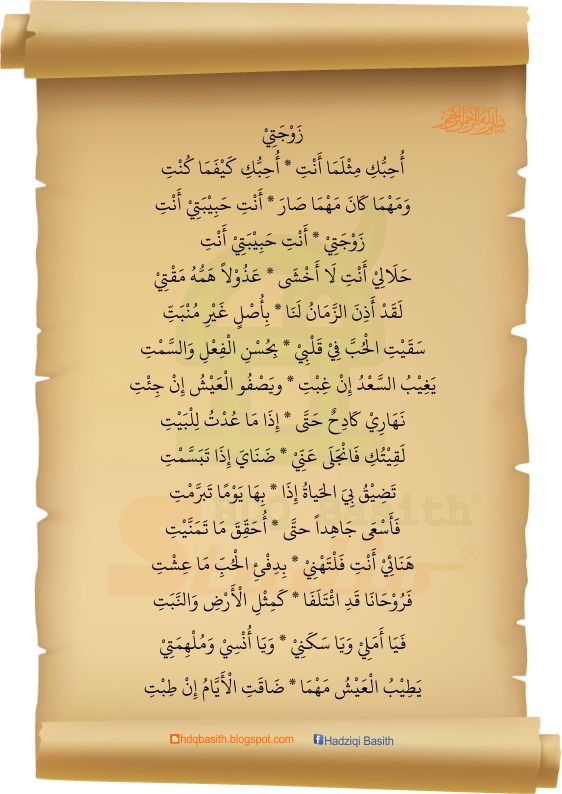 بسم الله الرحمن الرحيم
زَوْجَتِيْ
أُحِبُّكِ مِثْلَمَا أَنْتِ * أُحِبُّكِ كَيْفَمَا كُنْتِ
وَمَهْمَا كَانَ مَهْمَا صَارَ * أَنْتِ حَبِيْبَتِيْ أَنْتِ
زَوْجَتِيْ * أَنْتِ حَبِيْبَتِيْ أَنْتِ
حَلَالِيْ أَنْتِ لَا أَخْشَى * عَذُوْلاً هَمُّهُ مَقْتِيْ
لَقَدْ أَذِنَ الزَّمَانُ لَنَا * بِأُصْلٍ غَيْرِ مُنْبَتِّ
سَقَيْتِ الْحُبَّ فِيْ قَلْبِيْ * بِحُسْنِ الْفِعْلِ وَالسَّمْتِ
يَغِيْبُ السَّعْدُ إِنْ غِبْتِ * ويَصْفُو الْعَيْشُ إِنْ جِئْتِ
نَهَارِيْ كَادِحٌ حَتَّى * إِذَا مَا عُدْتُ لِلْبَيْتِ
لَقِيْتُكِ فَانْجَلَى عَنِّيْ * ضَنَايَ إِذَا تَبَسَّمْتِ
تَضِيْقُ بِيَ الْحَياةُ إِذَا * بِهَا يَوْمًا تَبَرَّمْتِ
فَأَسْعَى جَاهِداً حتَّى * أُحَقِّقَ مَا تَمَنَّيْتِ
هَنَائِيْ أَنْتِ فَلْتَهْنِيْ * بِدِفْئِ الْحُبِّ مَا عِشْتِ
فَرُوْحَانَا قَدِ ائْتَلَفَا * كَمِثْلِ الْأَرْضِ وَالنَّبَتِ
فَيَا أَمَلِيْ وَيَا سَكَنِيْ * وَيَا أُنْسِيْ وَمُلْهِمَتِيْ
يَطِيْبُ الْعَيْشُ مَهْمَا * ضَاقَتِ الْأَيَّامُ إِنْ طِبْتِ
hdqbasith.blogspot.com Hadziqi Basith